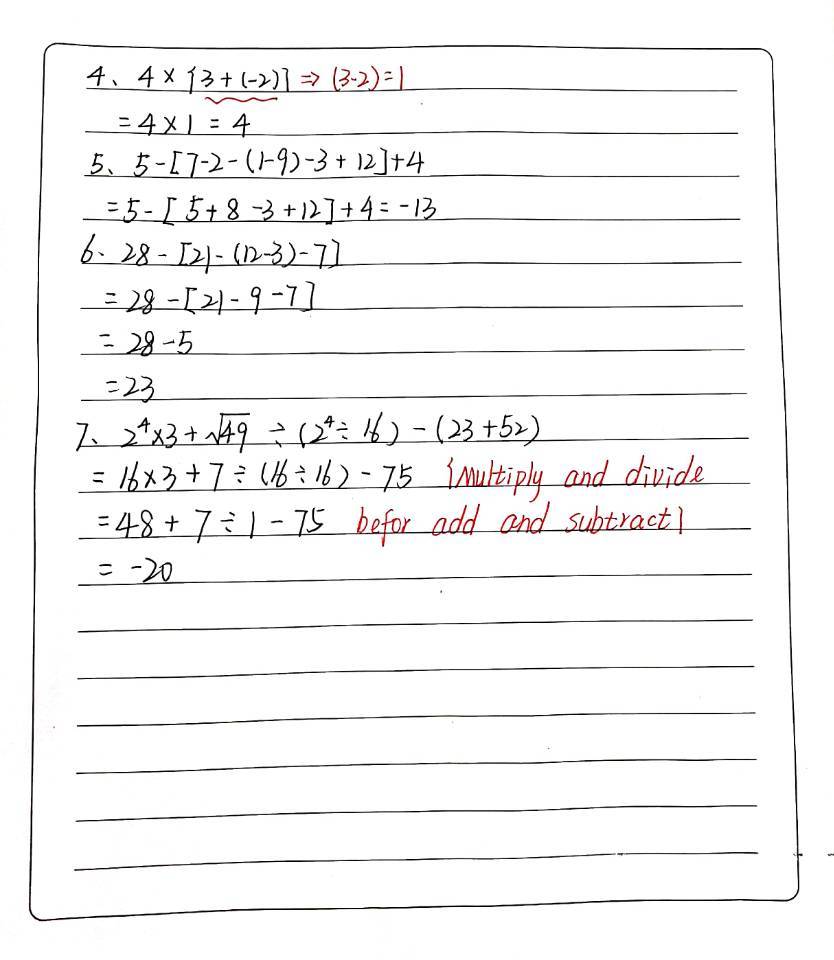 4、 4 × {3 + (-2)} ⇒ (3-2) = 1
= 4 × 1 = 4
5、 5 - [7-2 - (1-9) - 3 + 12] + 4
= 5 - [ 5 + 8 - 3 + 12] + 4 = -13
6、 28 - [21 - (12-3) - 7]
= 28 - [21 - 9 - 7]
= 28 - 5
= 23
7、 2⁴ × 3 + √49 ÷ (2⁴ ÷ 16) - (23 + 52)
= 16 × 3 + 7 ÷ (16 ÷ 16) - 75 {Multiply and divide
= 48 + 7 ÷ 1 - 75 befor add and subtract}
= -20